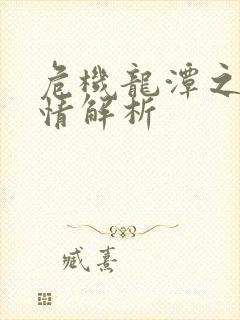 危機龍潭之
情解析
臧熹